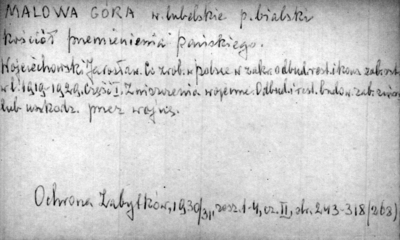 MALOWA GÓRA w. lubelskie p. bialski
kościół przemienienia pańskiego.
Wojciechowski Jarosław. Co zrob. w polsce w zakr. odbud. rest. i kons. zab. szt.
w l. 1919-1929. Część I. Zniszczenia wojenne. Odbud. i rest. budow. zab. zniszcz.
lub uszkodz. przez wojnę.
Ochrona Zabytków, 1930/31, zesz. 1-4, cz. II, str. 243-318 (268)